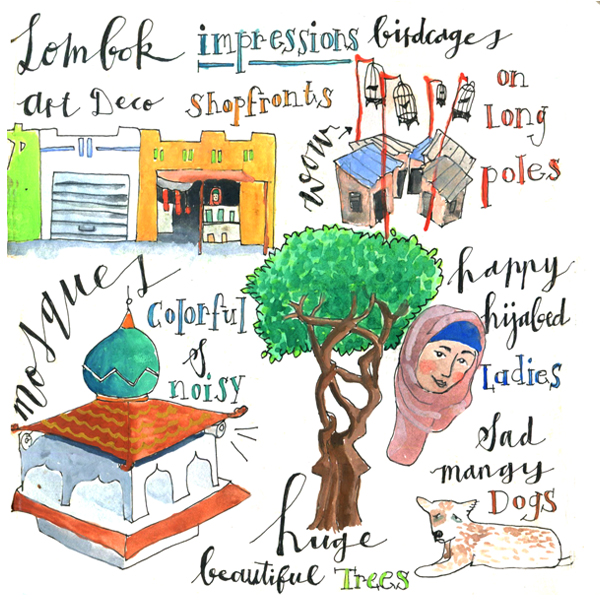 Lombok impressions birdcages
on
long
poles
wow
art Deco shopfronts
mosques
colorful
&
noisy
happy
hijabed
Ladies
Sad
mangy
Dogs
huge
beautiful Trees